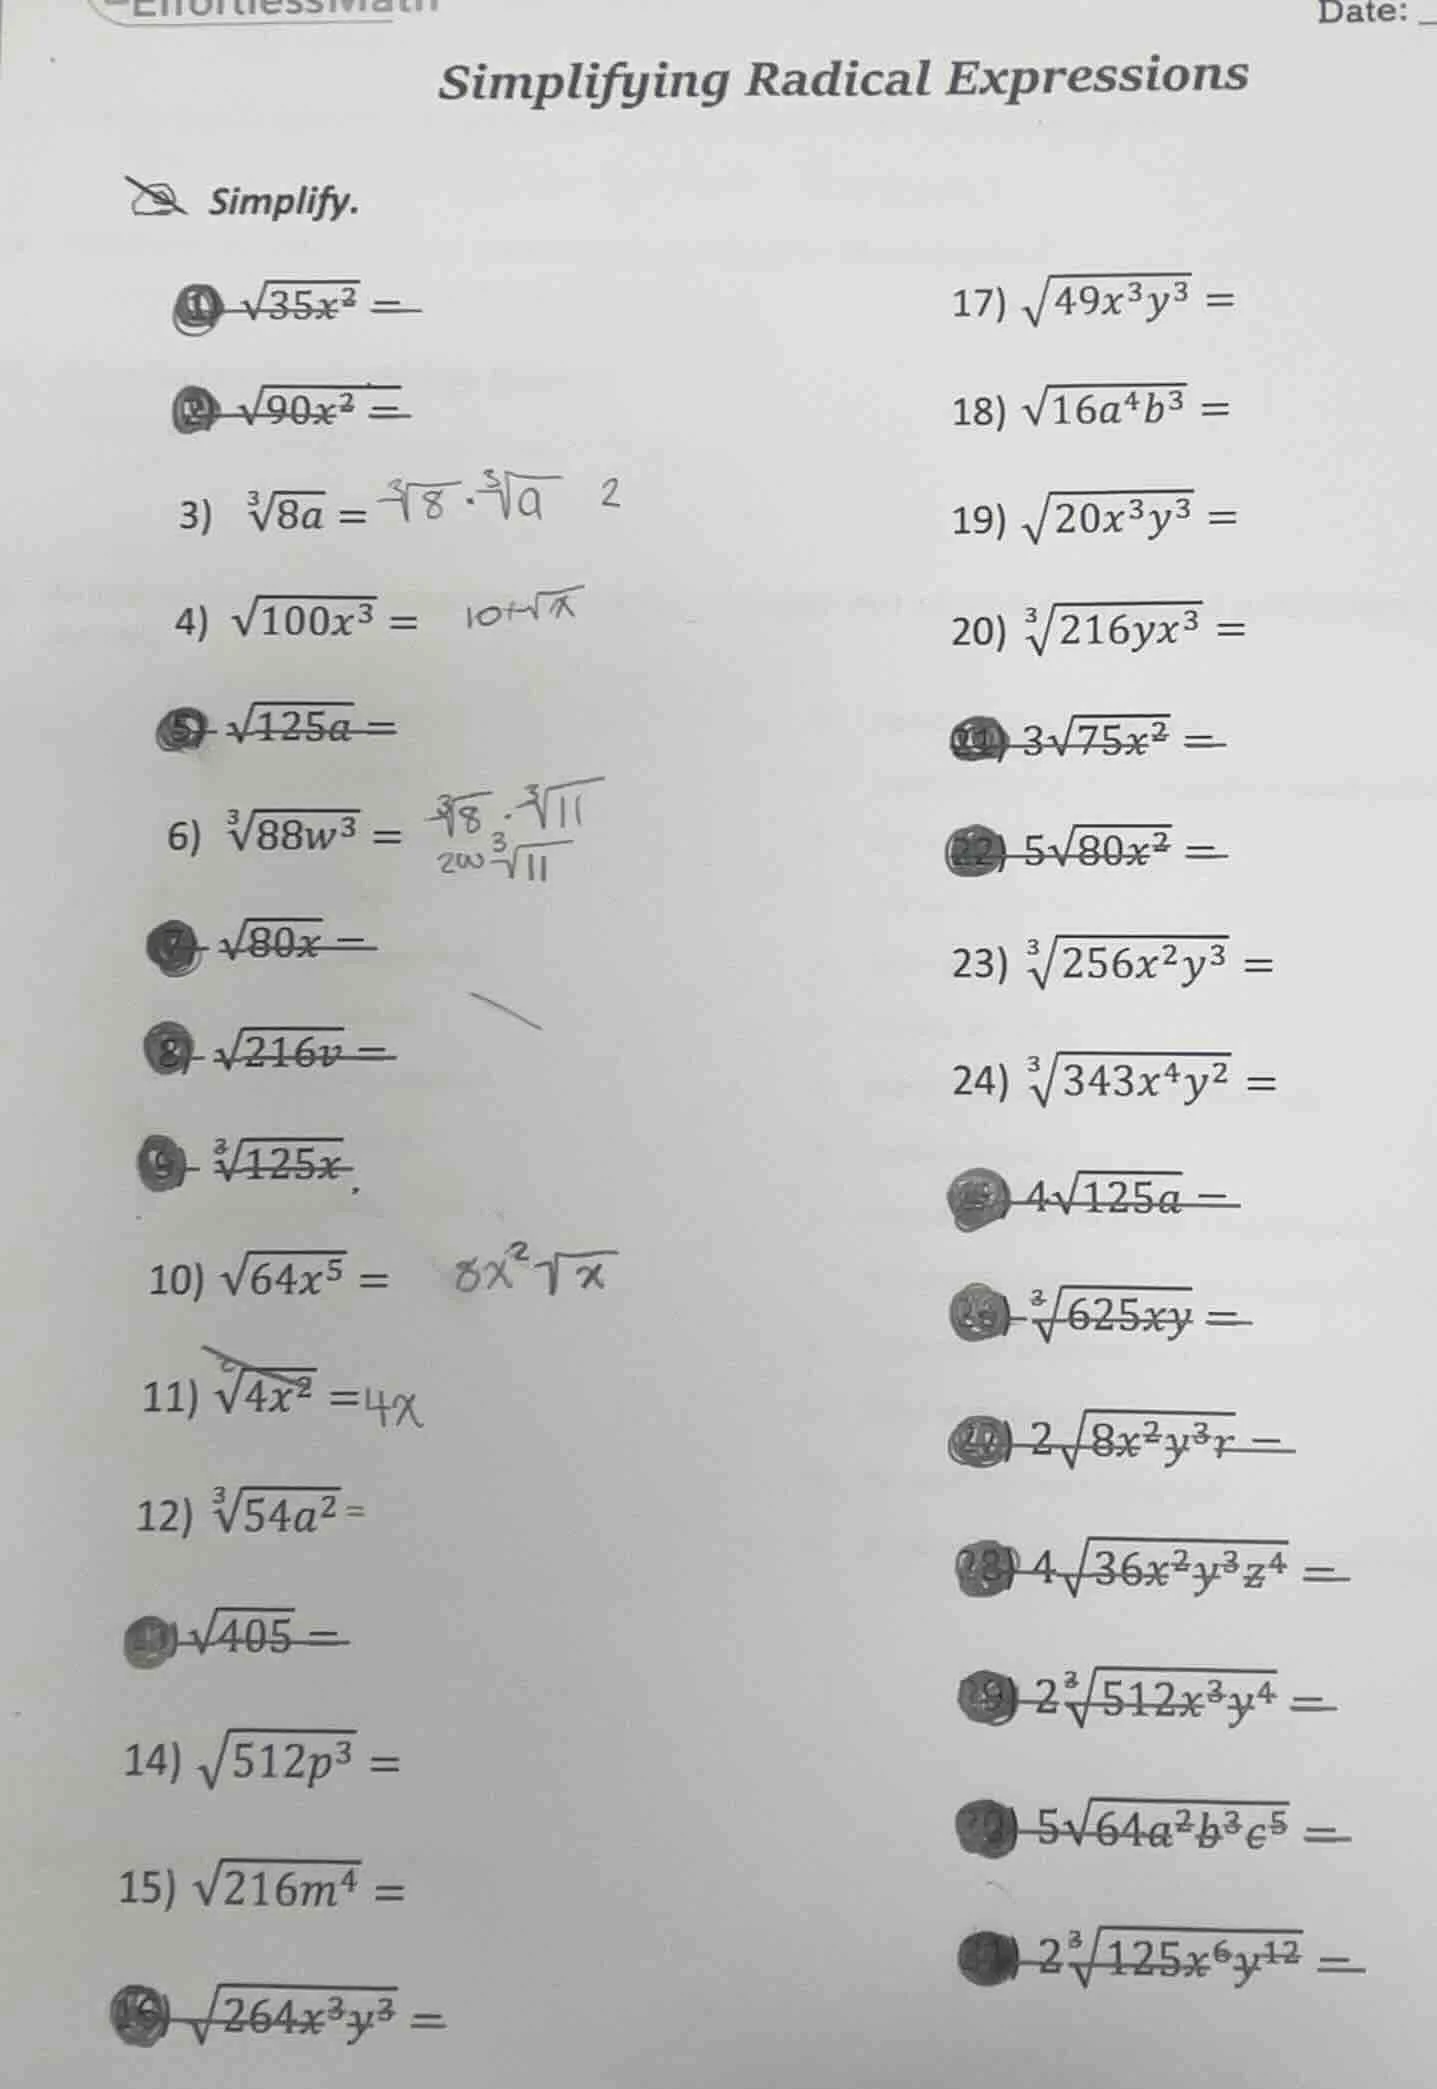 EffortlessMath
Date: _
Simplifying Radical Expressions
Simplify.
1) √35x² =
2) √90x² =
3) ∛8a = ∛8 · ∛a 2
4) √100x³ =
5) √125a =
6) ∛88w³ = ∛8 · ∛11
2w ∛11
7) √80x =
8) √216v =
9) ∛125x
10) √64x⁵ = 8x²√x
11) √4x² = 4x
12) ∛54a² =
√405 =
14) √512p³ =
15) √216m⁴ =
16) √264x³y³ =
17) √49x³y³ =
18) √16a⁴b³ =
19) √20x³y³ =
20) ∛216yx³ =
21) 3√75x² =
22) 5√80x² =
23) ∛256x²y³ =
24) ∛343x⁴y² =
4√125a =
∛625xy =
27) 2√8x²y³r =
28) 4√36x²y³z⁴ =
2∛512x³y⁴ =
5√64a²b³c⁵ =
2∛125x⁶y¹² =